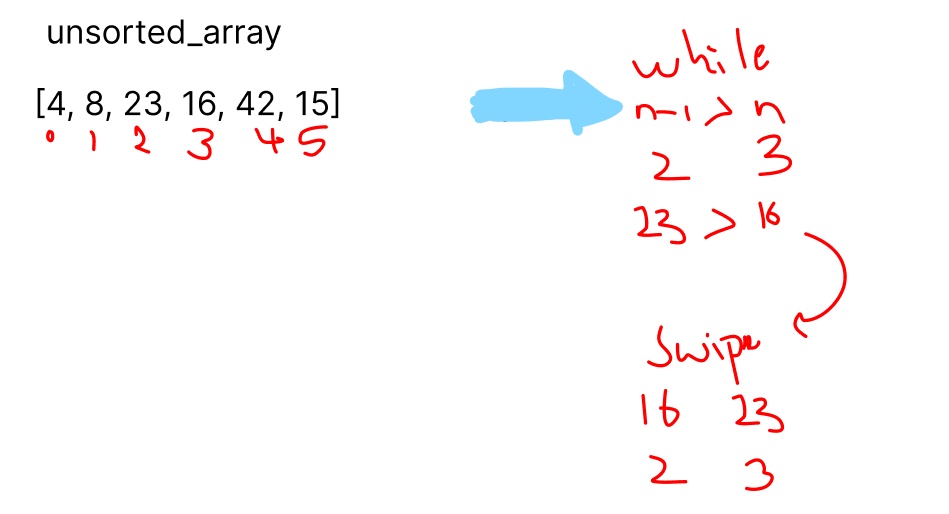 unsorted_array
[4, 8, 23, 16, 42, 15]
0 1 2 3 4 5
while
n-1 > n
2 3
23 > 16
Swipe
16 23
2 3